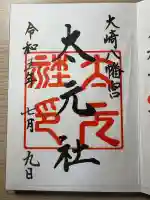 大崎八幡宮
大元社
令和 年 七月 九日